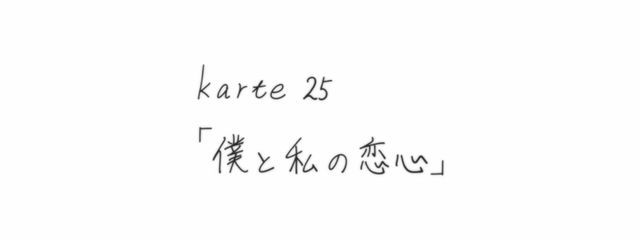 karte 25
「僕と私の恋心」